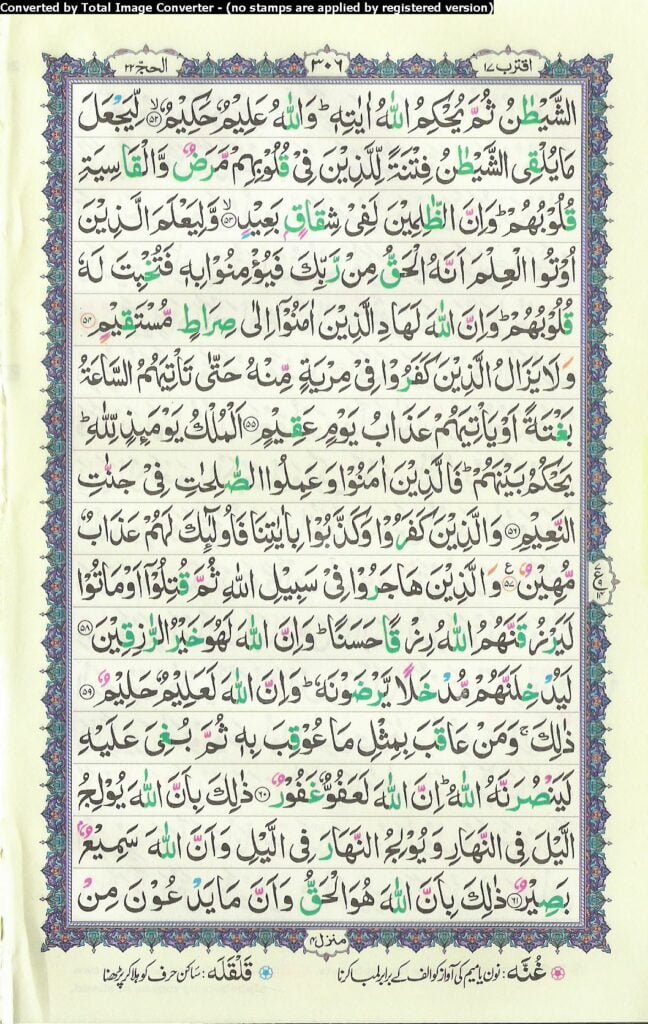 Converted by Total Image Converter - (no stamps are applied by registered version)
اقترب ١٧
٣٠٦
الحج ٢٢
الشَّيْطٰنُ ثُمَّ يُحْكِمُ اللّٰهُ اٰيٰتِهٖ ؕ وَاللّٰهُ عَلِيْمٌ حَكِيْمٌ ۙ﴿۵۲﴾ لِّيَجْعَلَ
مَا يُلْقِى الشَّيْطٰنُ فِتْنَةً لِّلَّذِيْنَ فِىْ قُلُوْبِهِمْ مَّرَضٌ وَّالْقَاسِيَةِ
قُلُوْبُهُمْ ؕ وَاِنَّ الظّٰلِمِيْنَ لَفِىْ شِقَاقٍۭ بَعِيْدٍ ۙ﴿۵۳﴾ وَّلِيَعْلَمَ الَّذِيْنَ
اُوْتُوا الْعِلْمَ اَنَّهُ الْحَقُّ مِنْ رَّبِّكَ فَيُؤْمِنُوْا بِهٖ فَتُخْبِتَ لَهٗ
قُلُوْبُهُمْ ؕ وَاِنَّ اللّٰهَ لَهَادِ الَّذِيْنَ اٰمَنُوْۤا اِلٰى صِرَاطٍ مُّسْتَقِيْمٍ ﴿۵۴﴾
وَلَا يَزَالُ الَّذِيْنَ كَفَرُوْا فِىْ مِرْيَةٍ مِّنْهُ حَتّٰى تَاْتِيَهُمُ السَّاعَةُ
بَغْتَةً اَوْ يَاْتِيَهُمْ عَذَابُ يَوْمٍ عَقِيْمٍ ﴿۵۵﴾ اَلْمُلْكُ يَوْمَىِٕذٍ لِّلّٰهِ ؕ
يَحْكُمُ بَيْنَهُمْ ؕ فَالَّذِيْنَ اٰمَنُوْا وَعَمِلُوا الصّٰلِحٰتِ فِىْ جَنّٰتِ
النَّعِيْمِ ﴿۵۶﴾ وَالَّذِيْنَ كَفَرُوْا وَكَذَّبُوْا بِاٰيٰتِنَا فَاُولٰٓىِٕكَ لَهُمْ عَذَابٌ
مُّهِيْنٌ ﴿۵۷﴾ ع وَالَّذِيْنَ هَاجَرُوْا فِىْ سَبِيْلِ اللّٰهِ ثُمَّ قُتِلُوْۤا اَوْ مَاتُوْا
لَيَرْزُقَنَّهُمُ اللّٰهُ رِزْقًا حَسَنًا ؕ وَاِنَّ اللّٰهَ لَهُوَ خَيْرُ الرّٰزِقِيْنَ ﴿۵۸﴾
لَيُدْخِلَنَّهُمْ مُّدْخَلًا يَّرْضَوْنَهٗ ؕ وَاِنَّ اللّٰهَ لَعَلِيْمٌ حَلِيْمٌ ﴿۵۹﴾
ذٰلِكَ ۚ وَمَنْ عَاقَبَ بِمِثْلِ مَا عُوْقِبَ بِهٖ ثُمَّ بُغِىَ عَلَيْهِ
لَيَنْصُرَنَّهُ اللّٰهُ ؕ اِنَّ اللّٰهَ لَعَفُوٌّ غَفُوْرٌ ﴿۶۰﴾ ذٰلِكَ بِاَنَّ اللّٰهَ يُوْلِجُ
الَّيْلَ فِى النَّهَارِ وَيُوْلِجُ النَّهَارَ فِى الَّيْلِ وَاَنَّ اللّٰهَ سَمِيْعٌۢ
بَصِيْرٌ ﴿۶۱﴾ ذٰلِكَ بِاَنَّ اللّٰهَ هُوَ الْحَقُّ وَاَنَّ مَا يَدْعُوْنَ مِنْ
منزل ۴
غُنَّه: نون یا میم کی آواز کو الف کے برابر لمبا کرنا
قَلْقَلَه: ساکن حرف کو ہلا کر پڑھنا